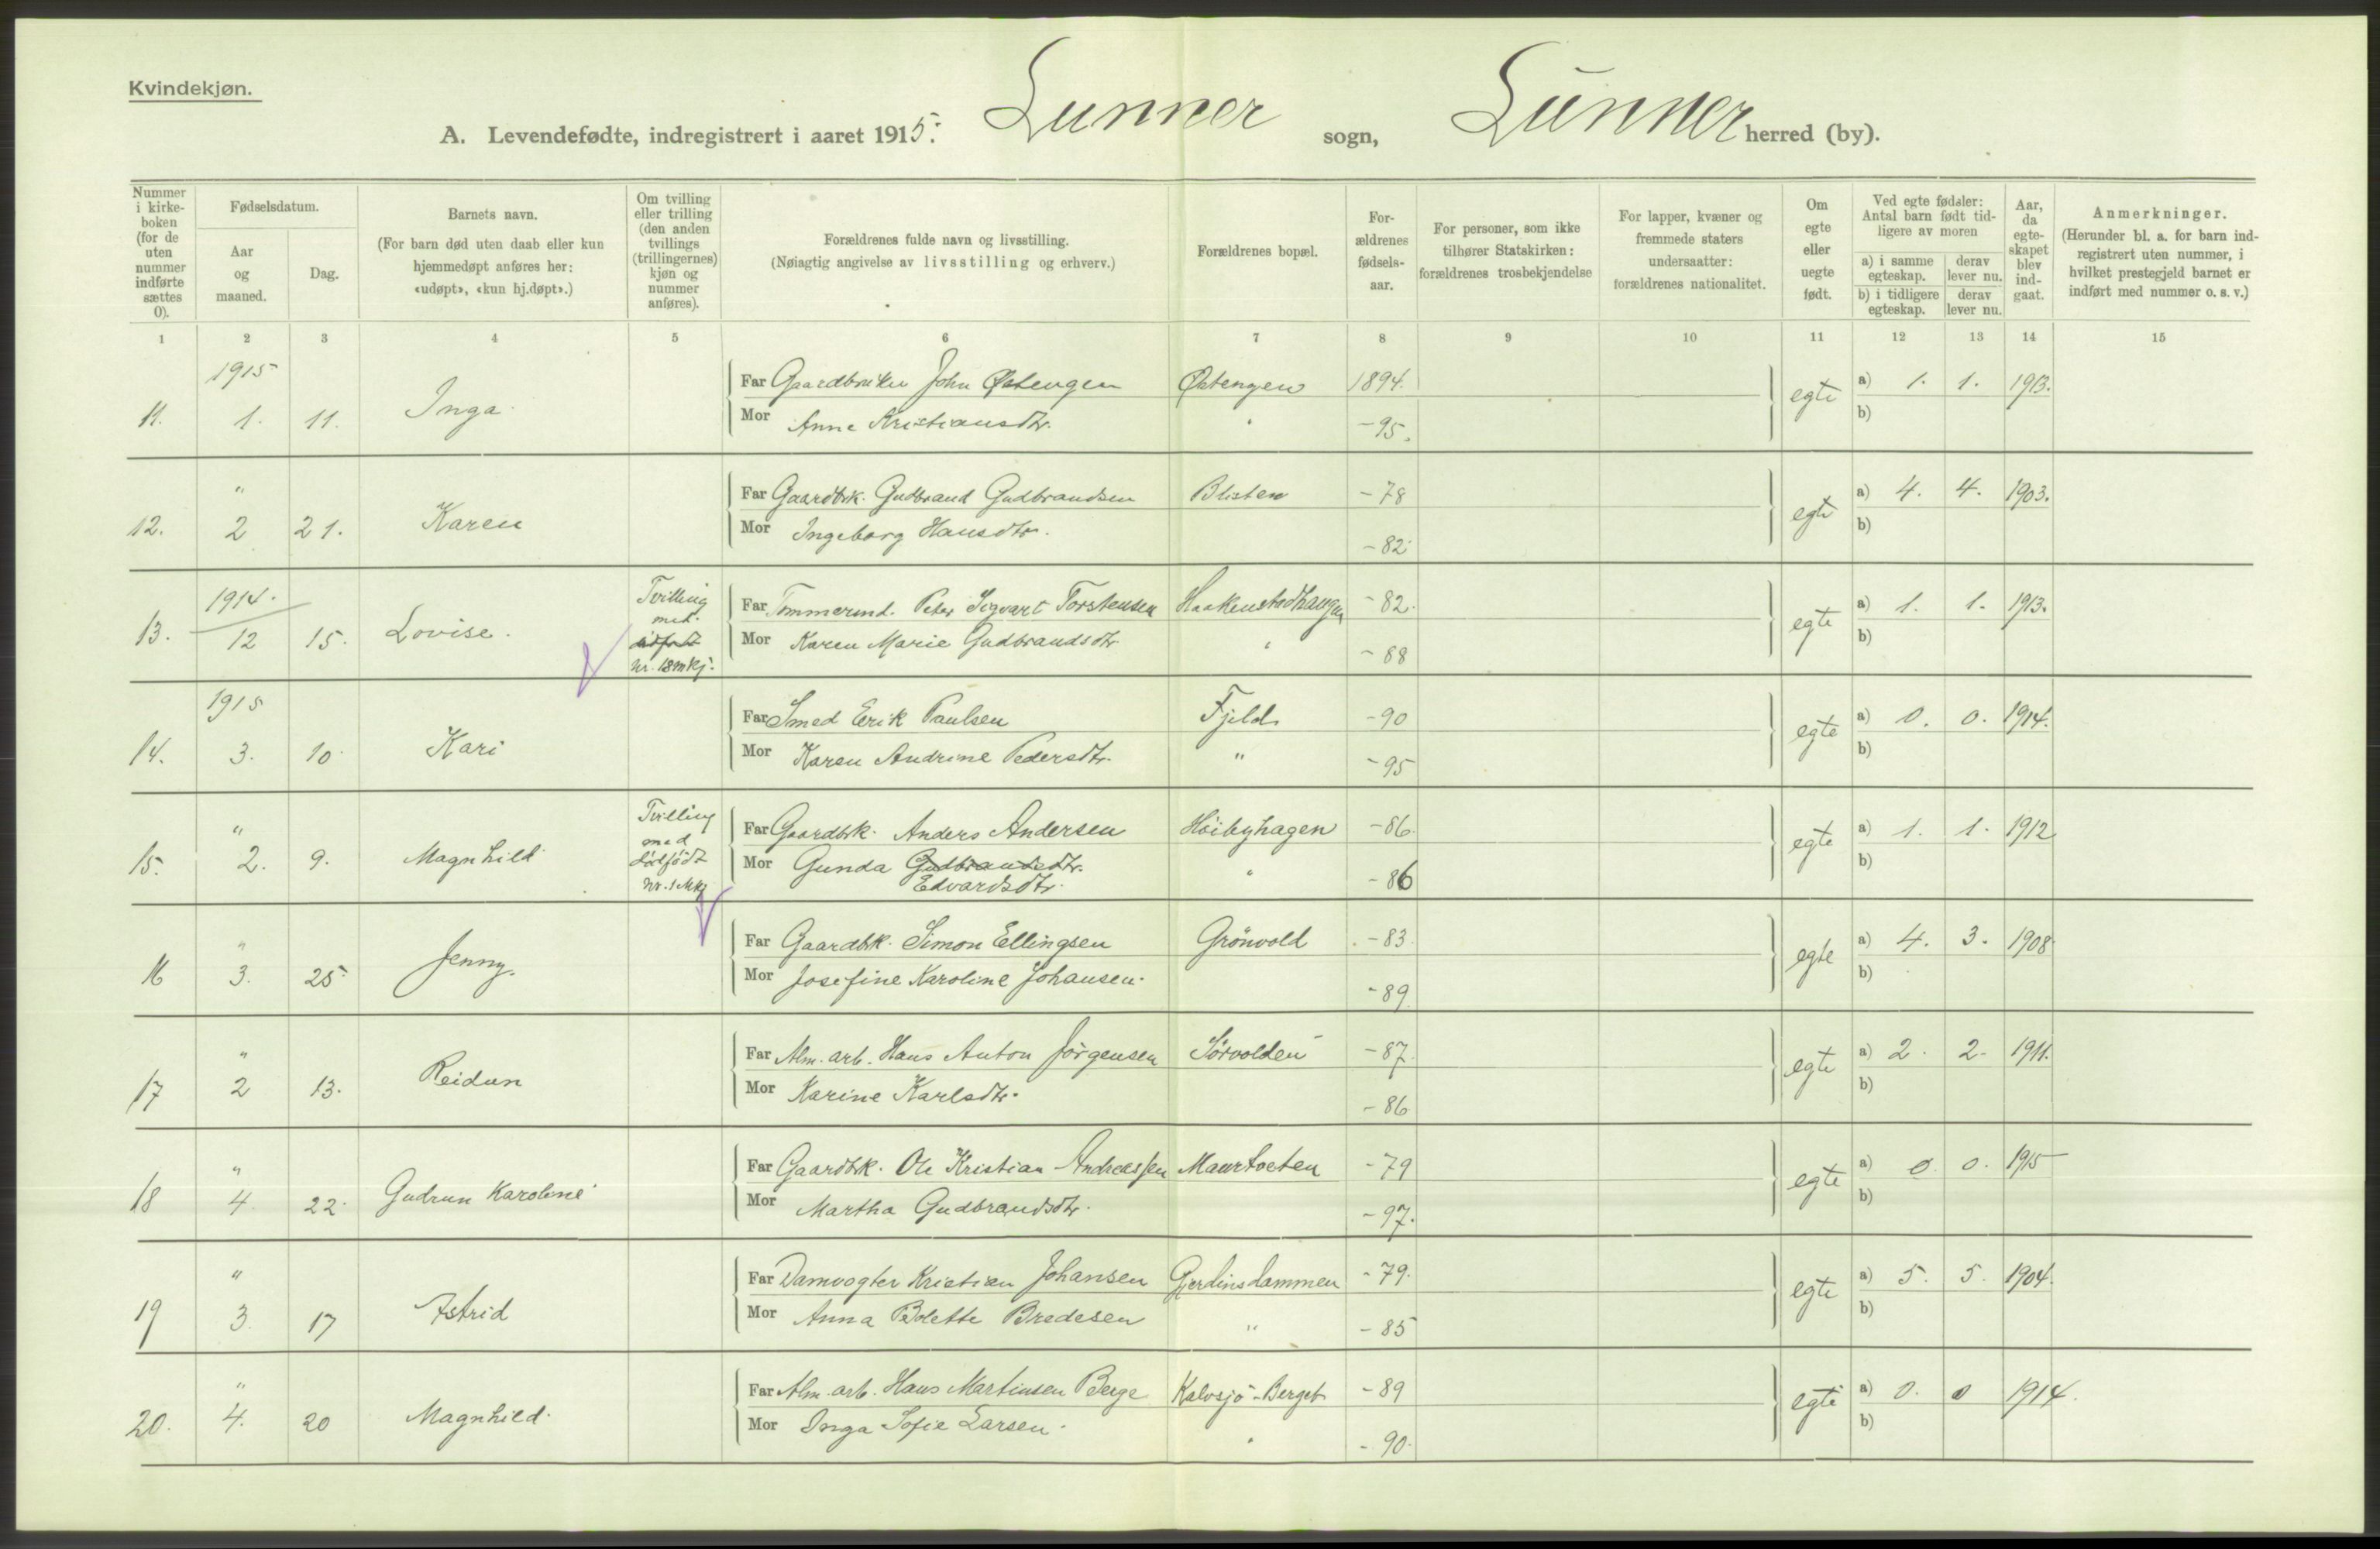 Kvindekjøn.
A. Levendefødte, indregistrert i aaret 1915. Lunner sogn, Lunner herred (by).
Nummer i kirke-boken (for de uten nummer indførte sættes 0).
Fødselsdatum.
Aar og maaned.
Dag.
Barnets navn.
(For barn død uten daab eller kun hjemmedøpt anføres her: «udøpt», «kun hj.døpt».)
Om tvilling eller trilling (den anden tvillings (trillingernes) kjøn og nummer anføres).
Forældrenes fulde navn og livsstilling.
(Nøiagtig angivelse av livsstilling og erhverv.)
Forældrenes bopæl.
For-ældrenes fødsels-aar.
For personer, som ikke tilhører Statskirken: forældrenes trosbekjendelse
For lapper, kvæner og fremmede staters undersaatter: forældrenes nationalitet.
Om egte eller uegte født.
Ved egte fødsler: Antal barn født tid-ligere av moren
a) i samme egteskap.
derav lever nu.
b) i tidligere egteskap.
derav lever nu.
Aar, da egte-skapet blev ind-gaat.
Anmerkninger.
(Herunder bl. a. for barn ind-registrert uten nummer, i hvilket prestegjeld barnet er indført med nummer o. s. v.)
1 2 3 4 5 6 7 8 9 10 11 12 13 14 15
1915
11. 1. 11. Inga.
Far Gaardbruker John Østengen Østengen 1894.
Mor Anne Kristiansdtr. " -95.
egte a) 1. 1. 1913.
b)
"
12. 2 21. Karen
Far Gaardbk. Gudbrand Gudbrandsen Blisten -78
Mor Ingeborg Hansdtr. -82
egte a) 4. 4. 1903.
b)
1914.
13. 12 15. Lovise.
Tvilling
med
nr. 18 mkj.
Far Tømmermd. Peter Sigvart Torstensen Haakenstadhaugen -82.
Mor Karen Marie Gudbrandsdtr " -88
egte a) 1. 1. 1913.
b)
1915
14. 3. 10. Kari
Far Smed Erik Paulsen Fjeld -90
Mor Karen Andrine Pedersdtr. " -95
egte a) 0. 0. 1914.
b)
"
15. 2. 9. Magnhild
Tvilling
med
dødfødt
nr. 1 Mkj
Far Gaardbk. Anders Andersen Høibyhagen -86.
Mor Gunda Gudbrandsdtr. " -86
Edvardsdtr.
egte a) 1. 1. 1912
b)
"
16 3. 25. Jenny.
Far Gaardbk. Simon Ellingsen Grönvold -83.
Mor Josefine Karoline Johansen. -89.
egte a) 4. 3. 1908
b)
"
17 2 13. Reidun
Far Alm. arb. Hans Anton Jörgensen Sörvolden -87.
Mor Karine Karlsdtr. -86
egte a) 2. 2. 1911.
b)
"
18 4. 22. Gudrun Karoline
Far Gaardbk. Ole Kristian Andreassen Maurtveten -79
Mor Martha Gudbrandsdtr. -97.
egte a) 0. 0. 1915
b)
"
19 3. 17 Astrid
Far Damvogter Kristian Johansen Gjerdinsdammen -79.
Mor Anna Bolette Bredesen " -85
egte a) 5. 5. 1904.
b)
"
20. 4. 20 Magnhild.
Far Alm. arb. Hans Martinsen Berge Kalvsjö-Berget -89
Mor Inga Sofie Larsen. " -90.
egte a) 0. 0 1914.
b)